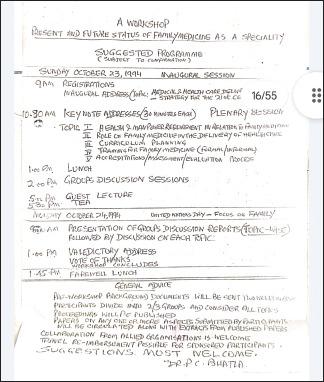 A WORKSHOP
PRESENT AND FUTURE STATUS OF FAMILY MEDICINE AS A SPECIALITY
SUGGESTED PROGRAMME
(SUBJECT TO CONFIRMATION)
SUNDAY OCTOBER 23, 1994 INAUGURAL SESSION
9AM REGISTRATIONS
INAUGURAL ADDRESS MEDICAL & HEALTH CARE
STRATEGY FOR THE 21st CE
16/55
10.30 AM KEY NOTE ADDRESSES (30 MINUTES EACH) PLENARY SESSION
TOPIC I HEALTH & MANPOWER REQUIREMENT IN RELATION TO FAMILY MEDICINE
II ROLE OF FAMILY MEDICINE IN THE DELIVERY OF HEALTH CARE
III CURRICULUM PLANNING
IV TRAINING FOR FAMILY MEDICINE (FORMAL/INFORMAL)
V ACCREDITATIONS/ASSESSMENT/EVALUATION PROCESS
1.00 PM LUNCH
2.00 PM GROUPS DISCUSSION SESSIONS
GUEST LECTURE
TEA
MONDAY OCTOBER 24, 1994 UNITED NATIONS DAY - FOCUS ON FAMILY
AM PRESENTATION OF GROUPS DISCUSSION REPORTS
FOLLOWED BY DISCUSSION ON EACH TOPIC
1.00 PM VALEDICTORY ADDRESS
VOTE OF THANKS
WORKSHOP CONCLUDES
1.15 PM FAREWELL LUNCH
GENERAL ADVICE
PRE-WORKSHOP BACKGROUND DOCUMENTS WILL BE SENT
PARTICIPANTS DIVIDE INTO 2/3 GROUPS AND CONSIDER ALL TOPICS
PROCEEDINGS WILL BE PUBLISHED
PAPERS ON ANY ONE OF MORE ASPECTS SUBMITTED BY PARTICIPANTS
WILL BE CIRCULATED ALONG WITH EXTRACTS FROM PUBLISHED PAPERS
COLLABORATION FROM ALLIED ORGANISATIONS IS WELCOME
TRAVEL RE-IMBURSEMENT POSSIBLE FOR SPONSORED PARTICIPANTS.
SUGGESTIONS MOST WELCOME.
-DR. P.C. BHATLA